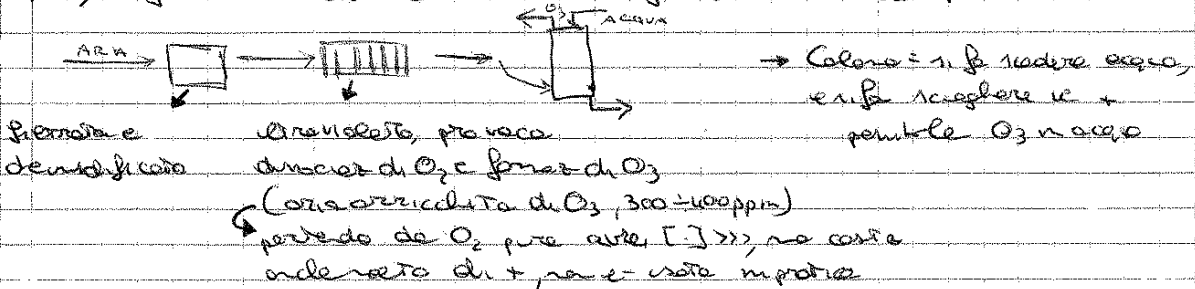 O3 ACQUA
ARIA
→ Colona: si fa scadere acqua,
e si fa sciogliere il +
possibile O3 in acqua
filtrata e
deumidificata
ultravioletto, provoca
dissociaz di O2 e formaz di O3
(aria arricchita di O3, 300÷400 ppm)
partendo da O2 puro avrei [·] >>>, ma costa
molto di +, non è usata in pratica